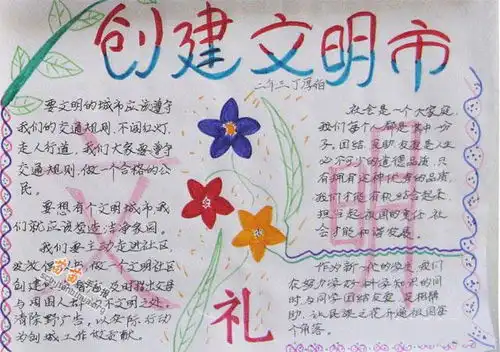 创建文明市
二年三 丁淳伯
要文明的城市应该遵守
我们的交通规则,不闯红灯,
走人行道。我们大家要遵守
交通规则,做一个合格的公
民。
要想有个文明城市,我
们就应该塑造洁净家园,
我们要主动走进社区
做一文明社区
创建
与周围人群的不文明之处,
清除野广告,以实际行动
为创城工作做贡献。
社会是一个大家庭,
我们每个人都是其中一分
子,团结、友睦、友爱是人生
必不可少的道德品质,只
有拥有这种优秀的品质,
我们才能有机结合起来,
担当起祖国的责任,社
会才能和谐发展。
作为新一代的学生,我们
在努力学好科学知识的同
时与同学团结友爱,互相帮
助,让民族之花开遍祖国每
个角落。
文
明
礼
苗苗